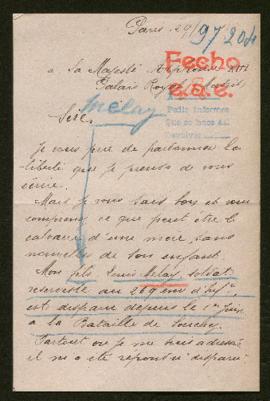 Paris 29/
97204
a Sa Majesté Alphonse XIII
Palais Royal Madrid
Fecho
e.a.e.
Pide informes
Que se hace así
Devolver
Melay
Sire,
Je vous prie de pardonner la
liberté que je prends de vous
écrire.
Mais je vous sais bon et vous
comprenez ce que peut être le
calvaire d'une mère sans
nouvelles de son enfant
Mon fils Louis Melay, soldat
réserviste au 269ème d'Infie
est disparu depuis le 1er Juin
a la Bataille de Souchez.
Partout ou je me suis adressé
il m'a été repondu disparu